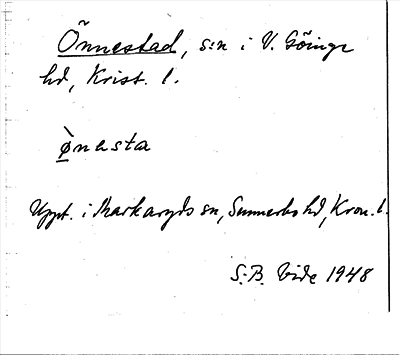 Önnestad, s:n i V. Göinge
hd, Krist. l.
ø̀nasta
Uppt. i Markaryds sn, Sunnerbo hd, Kron. l.
S.-B. Vide 1948